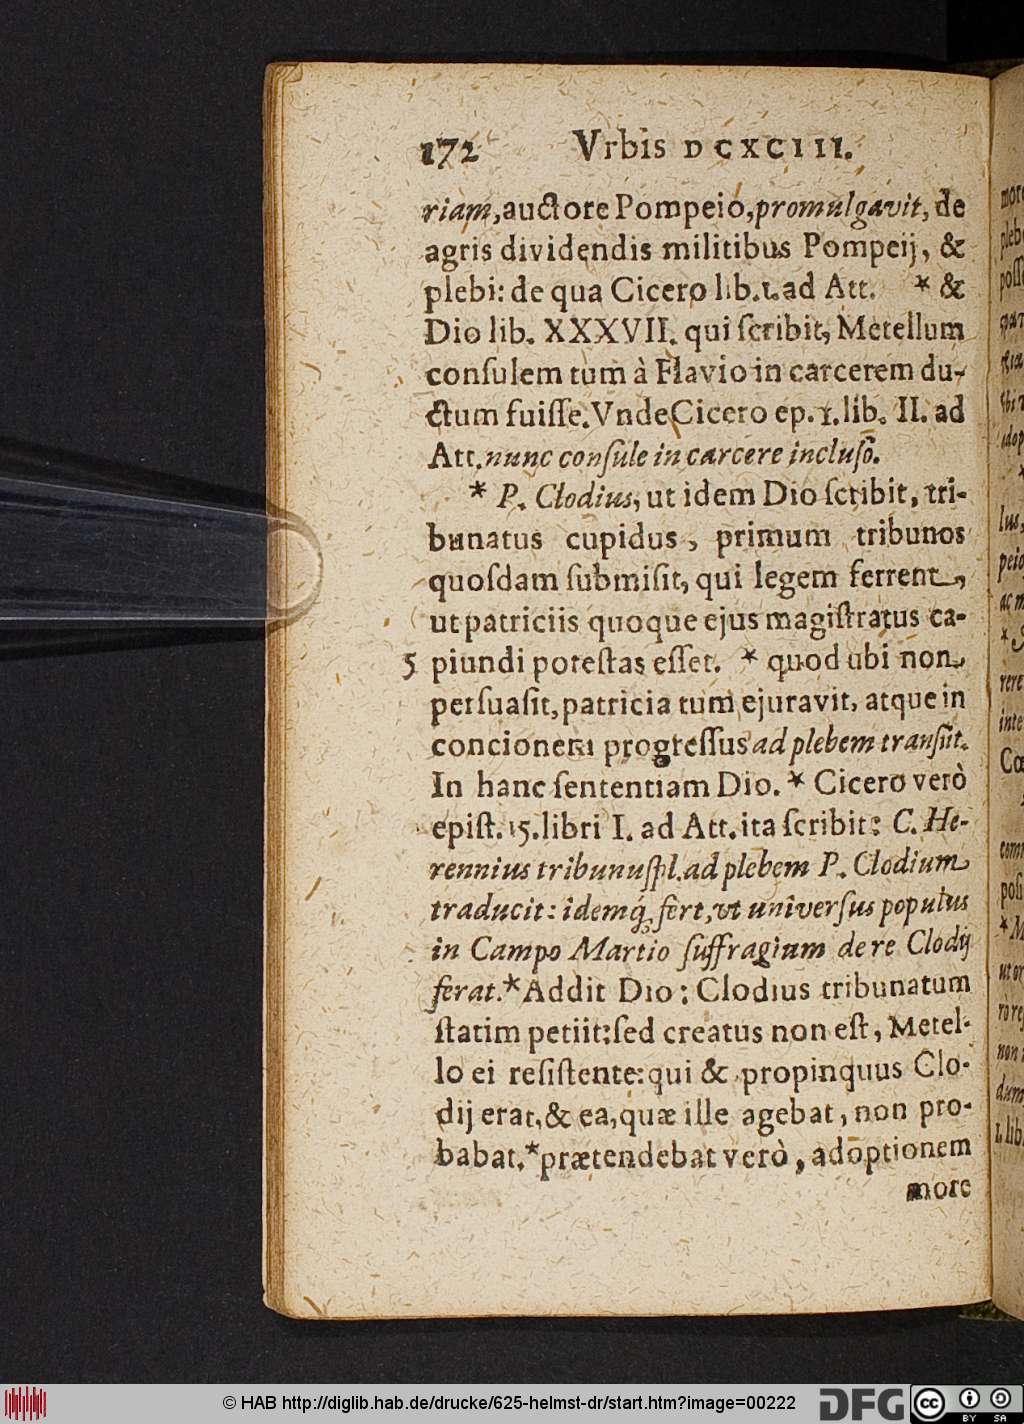 172 Vrbis DCXCIII.
riam, auctore Pompeio, promulgavit, de
agris dividendis militibus Pompeij, &
plebi: de qua Cicero lib. 1. ad Att. * &
Dio lib. XXXVII. qui ſcribit, Metellum
conſulem tum à Flavio in carcerem du-
ctum fuiſſe. Vnde Cicero ep. 1. lib. II. ad
Att. nunc conſule in carcere incluſo.
* P. Clodius, ut idem Dio ſcribit, tri-
bunatus cupidus, primum tribunos
quoſdam ſubmiſit, qui legem ferrent,
ut patriciis quoque ejus magiſtratus ca-
5 piundi poteſtas eſſet. * quod ubi non
perſuaſit, patricia tum ejuravit, atque in
concionem progreſſus ad plebem tranſiit.
In hanc ſententiam Dio. * Cicero verò
epiſt. 15. libri I. ad Att. ita ſcribit: C. He-
rennius tribunuſpl. ad plebem P. Clodium
traducit: idemq́; fert, ut univerſus populus
in Campo Martio ſuffragium de re Clodij
ferat. * Addit Dio: Clodius tribunatum
ſtatim petiit: ſed creatus non eſt, Metel-
lo ei reſiſtente: qui & propinquus Clo-
dij erat, & ea, quæ ille agebat, non pro-
babat. * prætendebat verò, adoptionem
more
© HAB http://diglib.hab.de/drucke/625-helmst-dr/start.htm?image=00222
DFG
cc BY SA